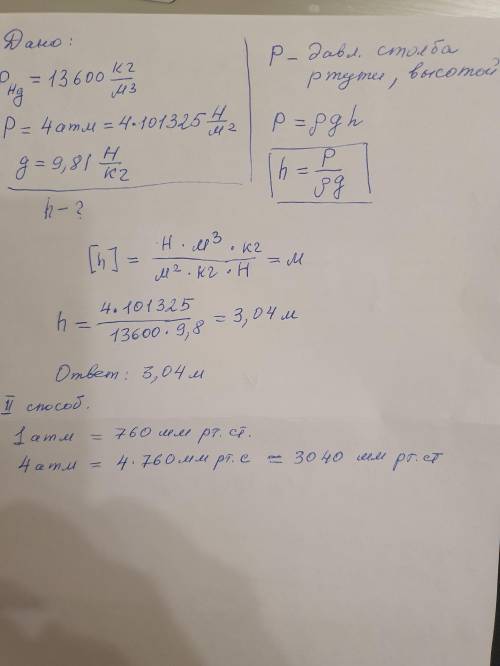 Дано:
ρ_Hg = 13600 кг/м³
P = 4 атм = 4·101325 Н/м²
g = 9,81 Н/кг
h - ?
P - давл. столба
ртути, высотой
P = ρgh
h = P/ρg
[h] = Н · м³ · кг / м² · кг · Н = м
h = 4·101325 / 13600·9,8 = 3,04 м
Ответ: 3,04 м
II способ.
1 атм = 760 мм рт. ст.
4 атм = 4·760 мм рт. с = 3040 мм рт. ст